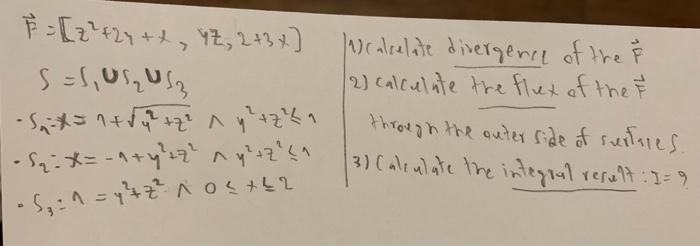 F⃗ = [z²+2y+x, yz, 2+3x]
S = S₁ ∪ S₂ ∪ S₃
• S₁: x = 1+√(y²+z²) ∧ y²+z² ≤ 1
• S₂: x = -1+y²+z² ∧ y²+z² ≤ 1
• S₃: 1 = y²+z² ∧ 0 ≤ x ≤ 2
1) calculate divergence of the F⃗
2) calculate the flux of the F⃗
through the outer side of surfaces.
3) Calculate the integral result: I = ?